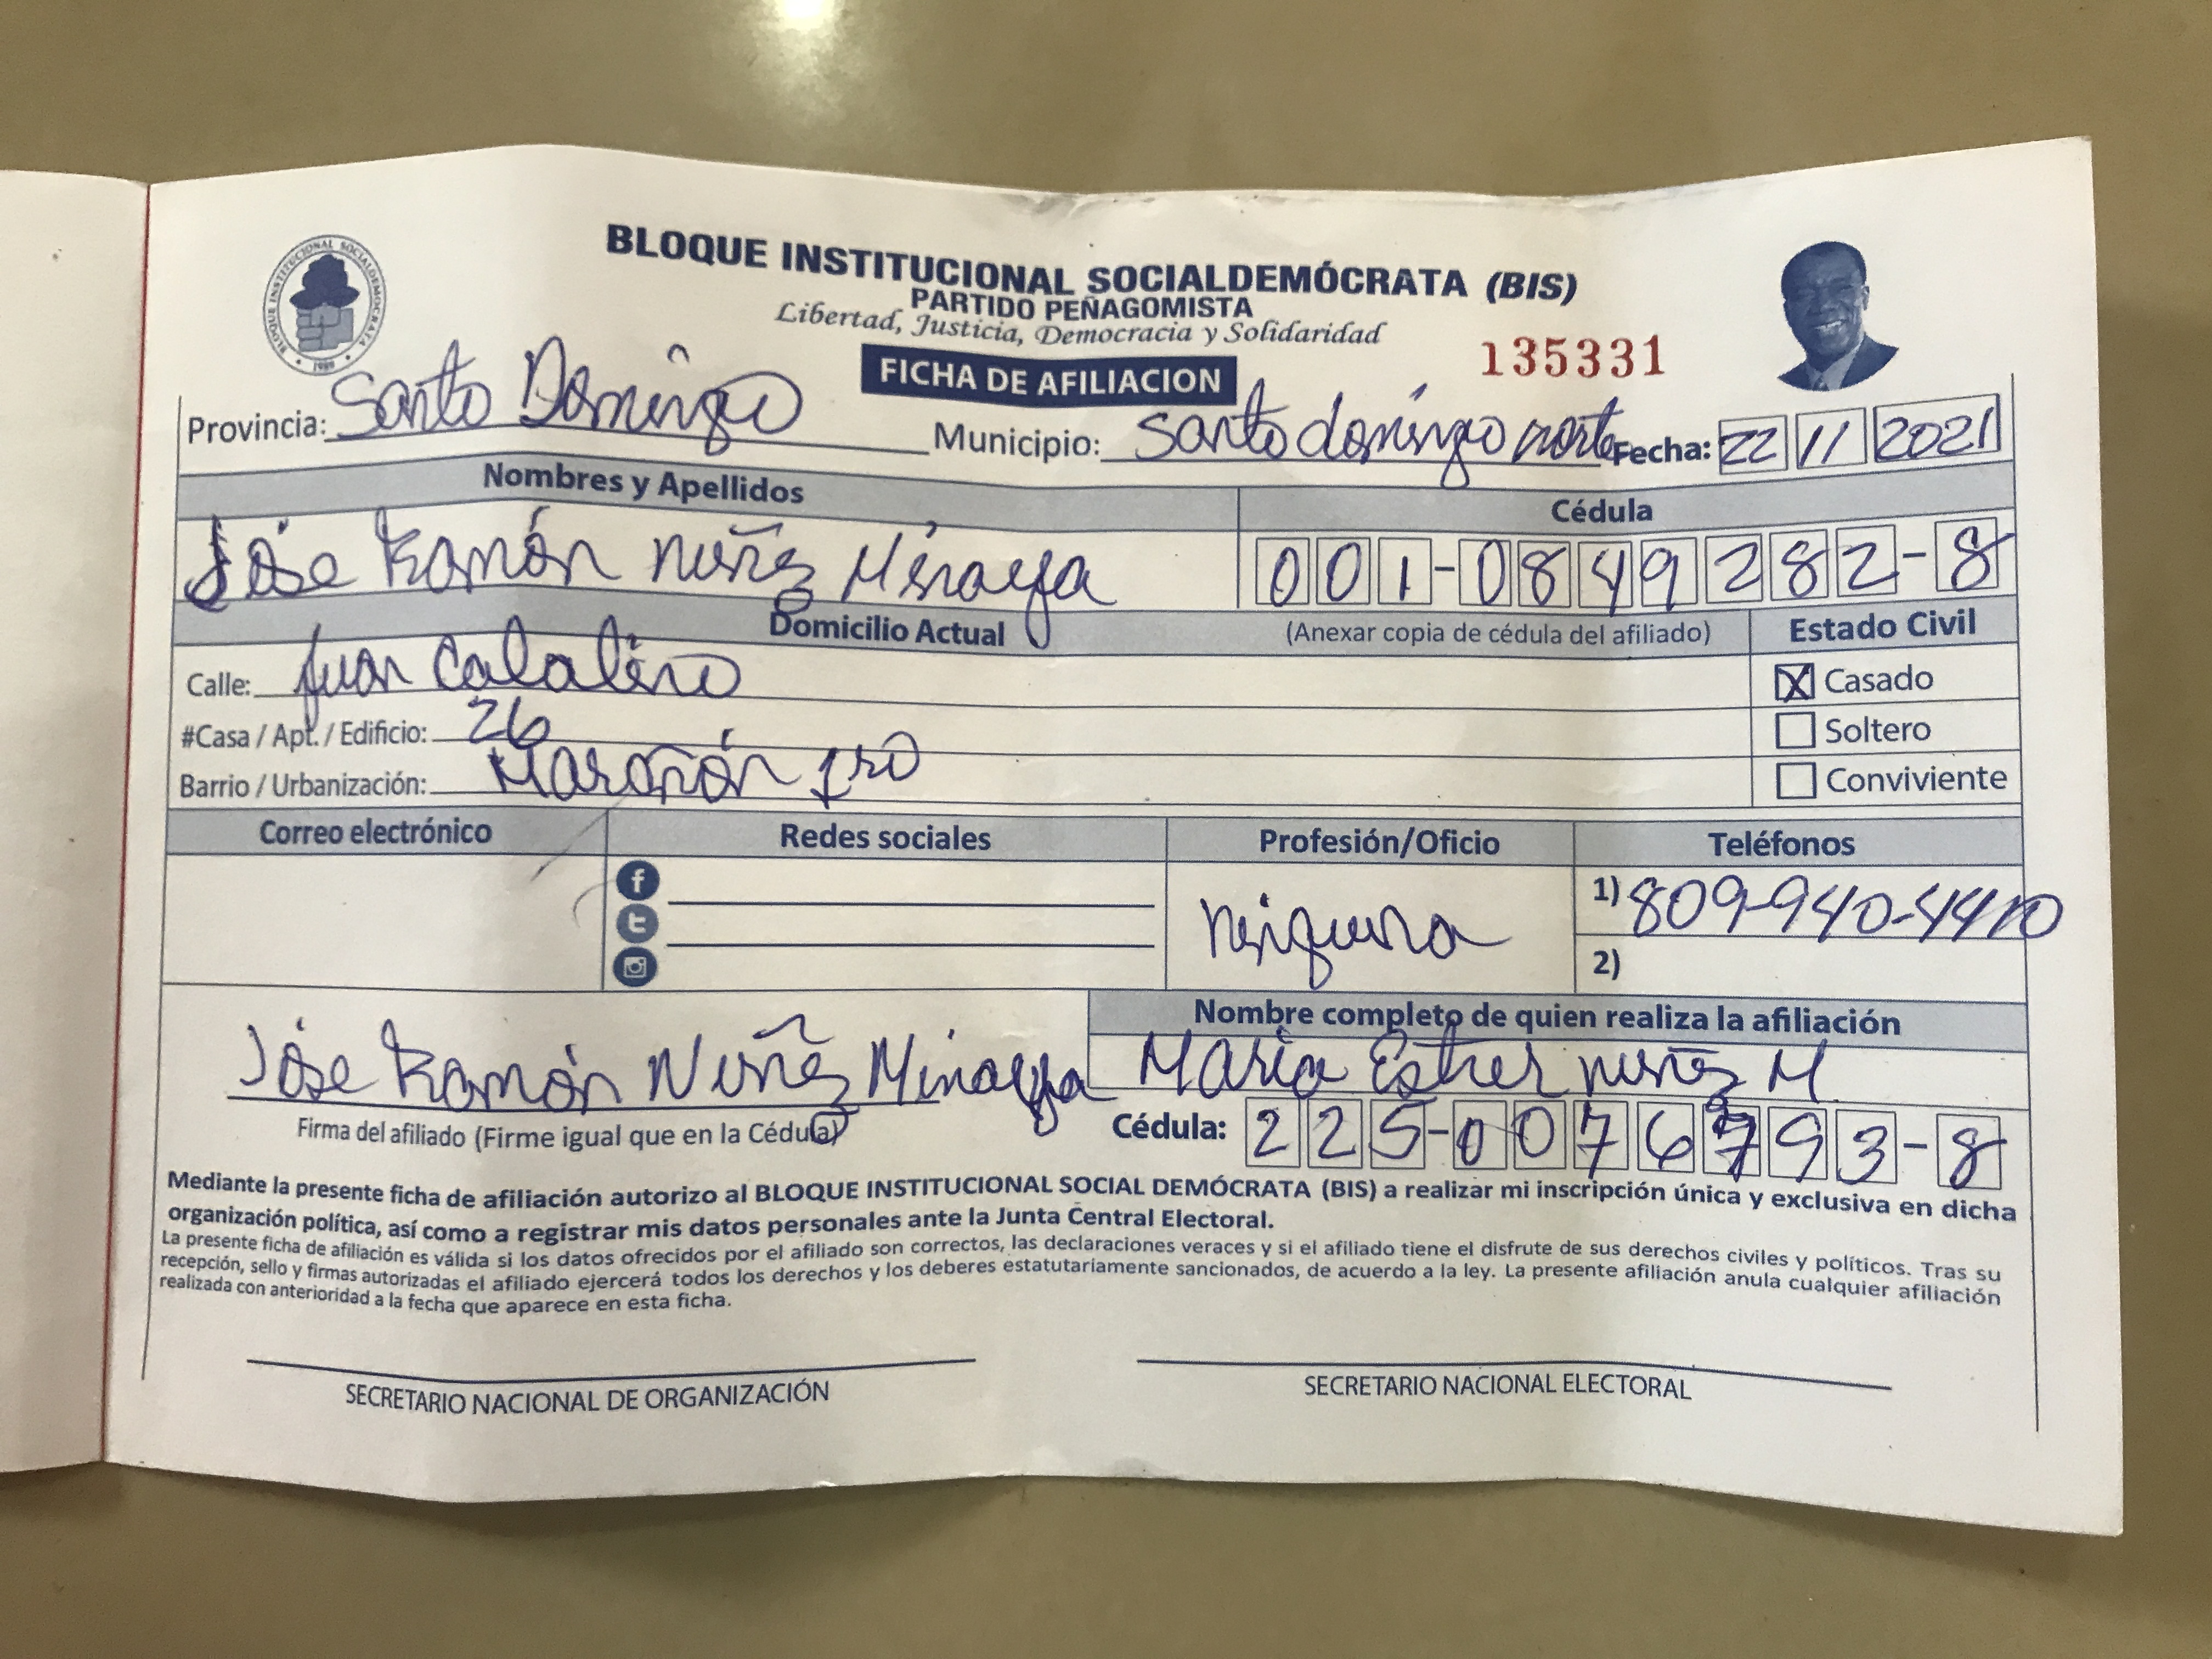 BLOQUE INSTITUCIONAL SOCIALDEMÓCRATA (BIS)
PARTIDO PEÑAGOMISTA
Libertad, Justicia, Democracia y Solidaridad
BLOQUE INSTITUCIONAL SOCIALDEMOCRATA
FICHA DE AFILIACION
135331
Provincia: Santo Domingo Municipio: Santo domingo norte Fecha: 22 11 2021
Nombres y Apellidos Cédula
Jóse Ramón Nuñez Minaya 001-0849282-8
Domicilio Actual (Anexar copia de cédula del afiliado) Estado Civil
Calle: Juan Calalino X Casado
#Casa / Apt. / Edificio: 26 Soltero
Barrio / Urbanización: Marañón 1ro Conviviente
Correo electrónico Redes sociales Profesión/Oficio Teléfonos
1) 809-940-4410
2)
Nombre completo de quien realiza la afiliación
Jóse Ramón Nuñez Minaya Maria Esther nuñez M
Firma del afiliado (Firme igual que en la Cédula) Cédula: 225-0076993-8
Mediante la presente ficha de afiliación autorizo al BLOQUE INSTITUCIONAL SOCIAL DEMÓCRATA (BIS) a realizar mi inscripción única y exclusiva en dicha
organización política, así como a registrar mis datos personales ante la Junta Central Electoral.
La presente ficha de afiliación es válida si los datos ofrecidos por el afiliado son correctos, las declaraciones veraces y si el afiliado tiene el disfrute de sus derechos civiles y políticos. Tras su
recepción, sello y firmas autorizadas el afiliado ejercerá todos los derechos y los deberes estatutariamente sancionados, de acuerdo a la ley. La presente afiliación anula cualquier afiliación
realizada con anterioridad a la fecha que aparece en esta ficha.
SECRETARIO NACIONAL DE ORGANIZACIÓN SECRETARIO NACIONAL ELECTORAL